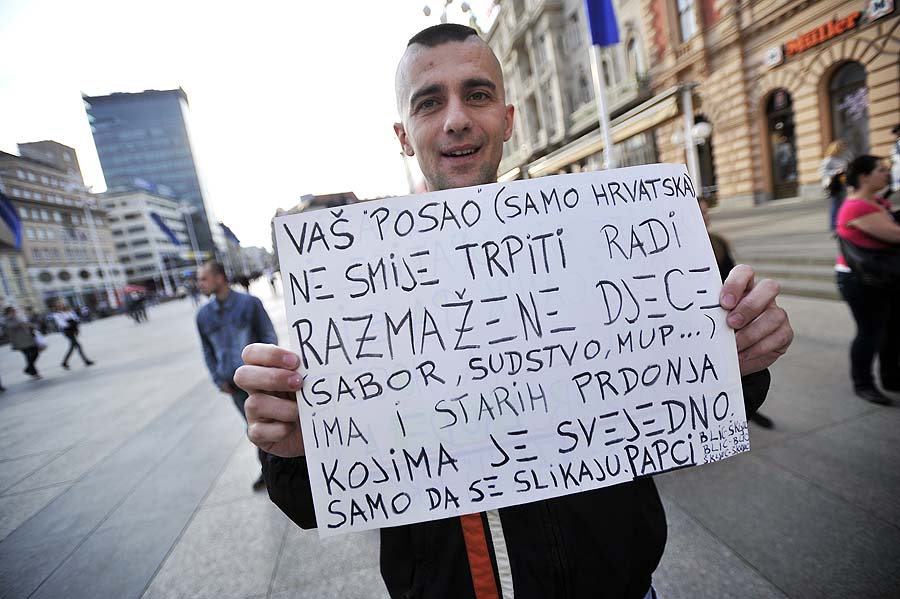 Müller
VAŠ "POSAO" (SAMO HRVATSKA)
NE SMIJE TRPITI RADI
RAZMAŽENE DJECE
(SABOR, SUDSTVO, MUP...)
IMA I STARIH PRDONJA
KOJIMA JE SVEJEDNO.
SAMO DA SE SLIKAJU. PAPCI
BLIC-ŠKLJC
BLIC-BLC
ŠKLJC-ŠKLJC